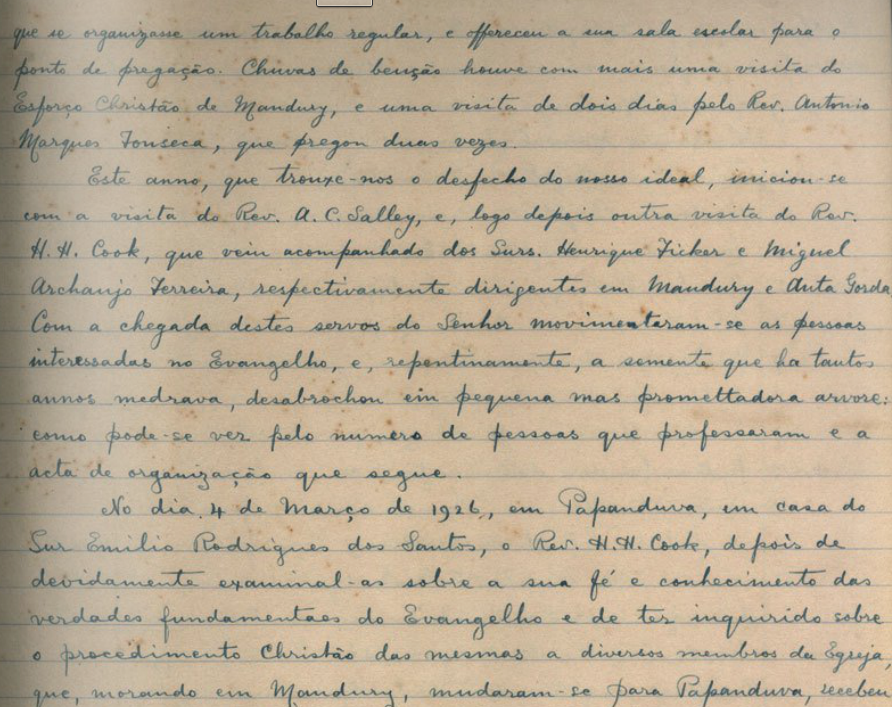 que se organizasse um trabalho regular, e offereceu a sua sala escolar para o
ponto de pregação. Chuvas de benção houve com mais uma visita do
Esforço Christão de Mandury, e uma visita de dois dias pelo Rev. Antonio
Marques Fonseca, que pregou duas vezes.
Este anno, que trouxe-nos o desfecho do nosso ideal, iniciou-se
com a visita do Rev. A. C. Salley, e, logo depois outra visita do Rev.
H. H. Cook, que veiu acompanhado dos Surs. Henrique Ficker e Miguel
Archanjo Ferreira, respectivamente dirigentes em Mandury e Anta Gorda
Com a chegada destes servos do Senhor movimentaram-se as pessoas
interessadas no Evangelho, e, repentinamente, a semente que ha tantos
annos medrava, desabrochou em pequena mas promettadora arvore:
como pode-se ver pelo numero de pessoas que professaram e a
acta de organização que segue.
No dia 4 de Março de 1926, em Papanduva, em casa do
Sur Emilio Rodrigues dos Santos, o Rev. H. H. Cook, depois de
devidamente examinal-as sobre a sua fé e conhecimento das
verdades fundamentaes do Evangelho e de ter inquirido sobre
o procedimento Christão das mesmas a diversos membros da Egreja,
que, morando em Mandury, mudaram-se para Papanduva, recebeu